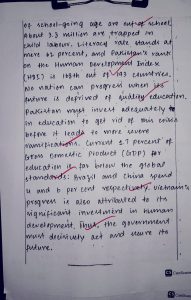 of school-going age are out of school.
About 3.3 million are trapped in
child labour. Literacy rate stands at
mere 62 percent, and Pakistan's rank
on the Human Development Index
(HDI) is 168th out of 193 countries.
No nation can progress when its
future is deprived of quality education.
Pakistan must invest adequately
in education to get rid of this crisis
before it leads to more severe
ramifications. Current 1.7 percent of
Gross Domestic Product (GDP) for
education is far below the global
standards. Brazil and China spend
and 6 per cent respectively. Vietnam's
progress is also attributed to its
significant investment in human
development. Thus, the government
must decisively act and secure its
future.